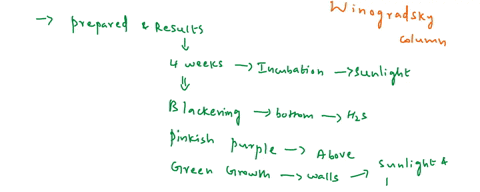 Winogradsky
column
→ prepared & Results
4 weeks → Incubation → Sunlight
Blackening → bottom → H2S
pinkish purple → Above
Green Growth → walls → Sunlight &